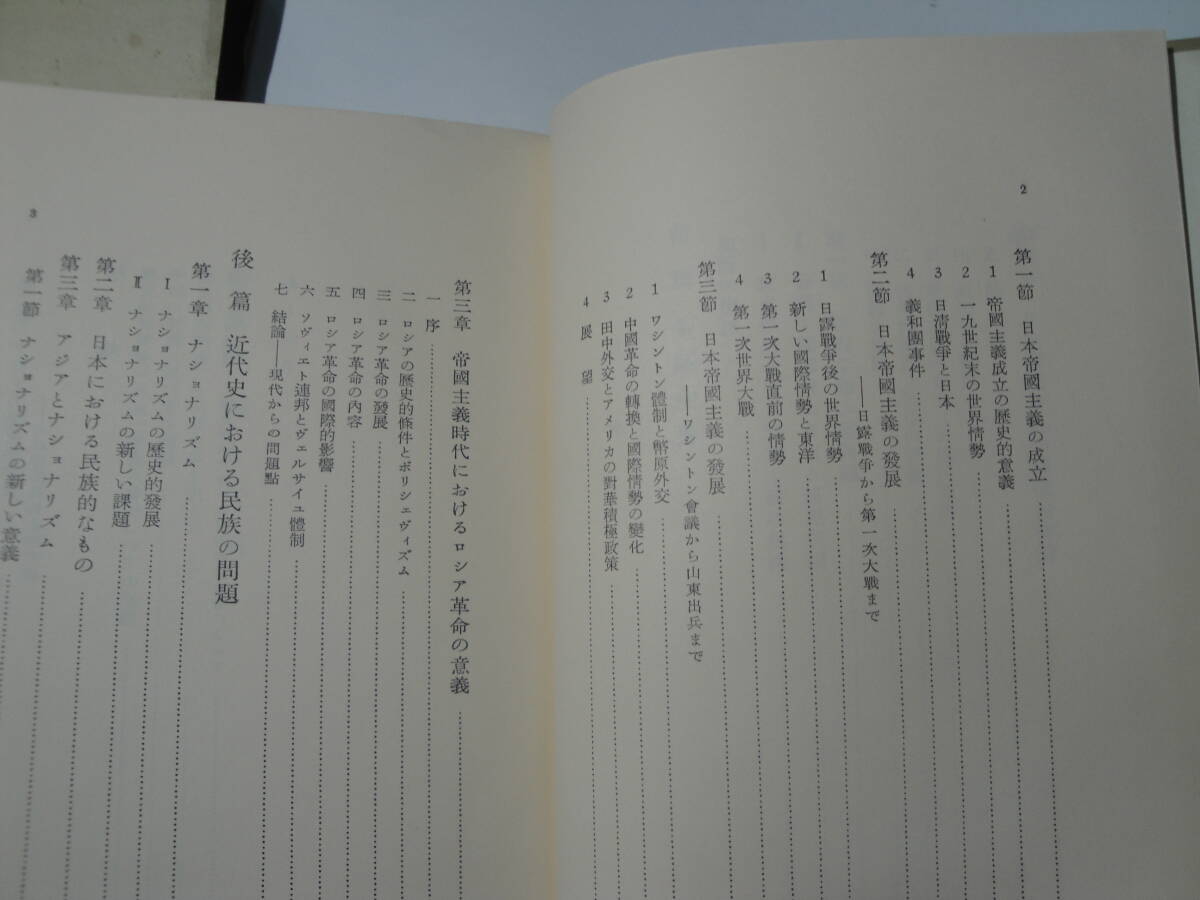 2
第一節　日本帝國主義の成立
1　帝國主義成立の歴史的意義
2　一九世紀末の世界情勢
3　日清戰爭と日本
4　義和團事件
第二節　日本帝國主義の發展
――日露戰爭から第一次大戰まで
1　日露戰爭後の世界情勢
2　新しい國際情勢と東洋
3　第一次大戰直前の情勢
4　第一次世界大戰
第三節　日本帝國主義の發展
――ワシントン會議から山東出兵まで
1　ワシントン體制と幣原外交
2　中國革命の轉換と國際情勢の變化
3　田中外交とアメリカの對華積極政策
4　展　望
第三章　帝國主義時代におけるロシア革命の意義
一　序
二　ロシアの歴史的條件とボリシェヴィズム
三　ロシア革命の發展
四　ロシア革命の內容
五　ロシア革命の國際的影響
六　ソヴィエト連邦とヴェルサイユ體制
七　結論――現代からの問題點
後　篇　近代史における民族の問題
第一章　ナショナリズム
Ⅰ　ナショナリズムの歴史的發展
Ⅱ　ナショナリズムの新しい課題
第二章　日本における民族的なもの
第三章　アジアとナショナリズム
第一節　ナショナリズムの新しい意義
3